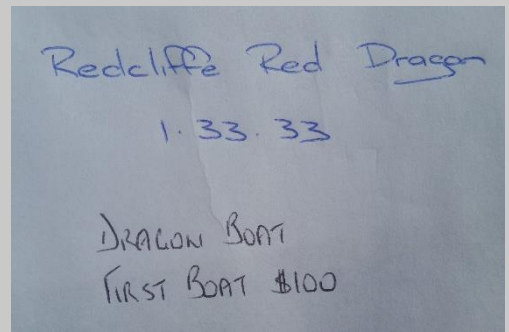 Redcliffe Red Dragon
1.33.33
DRAGON BOAT
FIRST BOAT $100